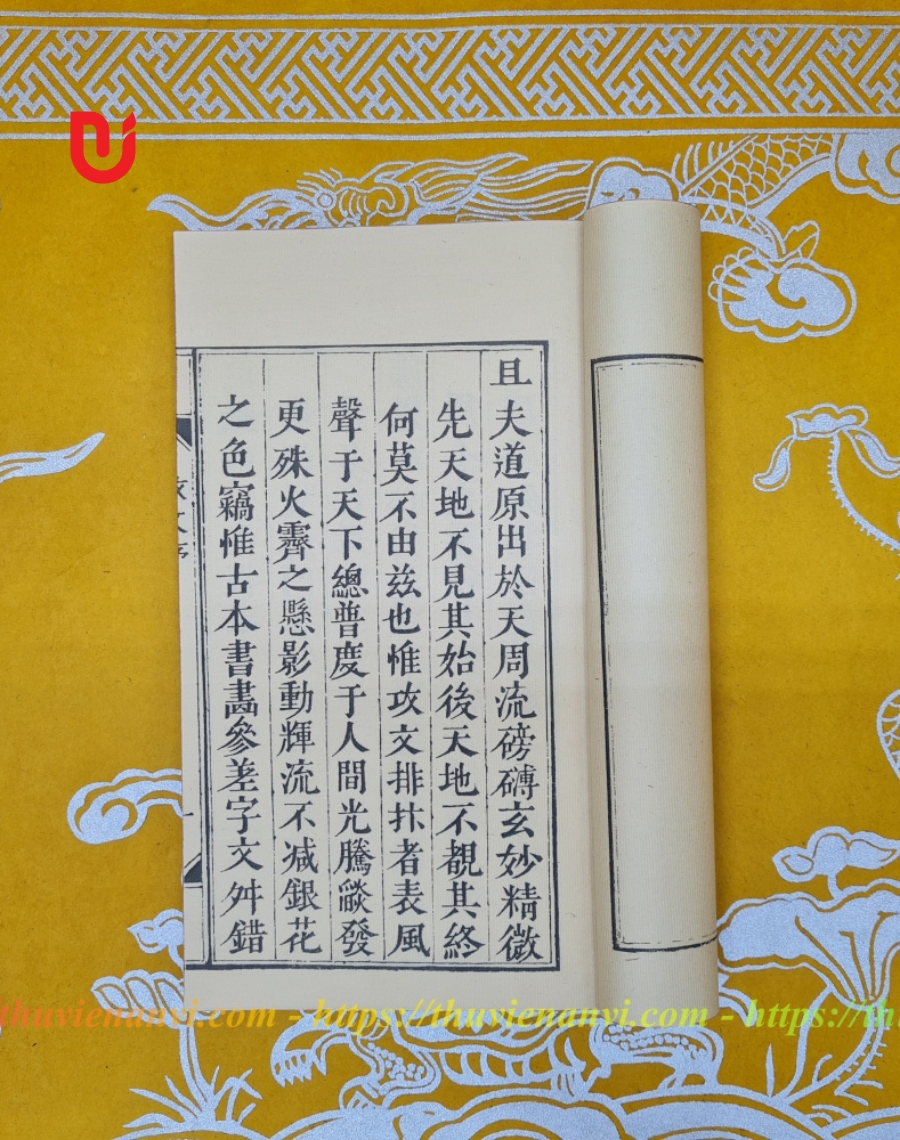 且夫道原出於天周流磅礴玄妙精微
先天地不見其始後天地不覩其終
何莫不由茲也惟攻文排抃者表風
聲于天下總普度于人間光騰燄發
更殊火霽之懸影動輝流不减銀花
之色竊惟古本書畵參差字文舛錯
文序
thuvienanvi.com - https://thuvienanvi.com - https://th